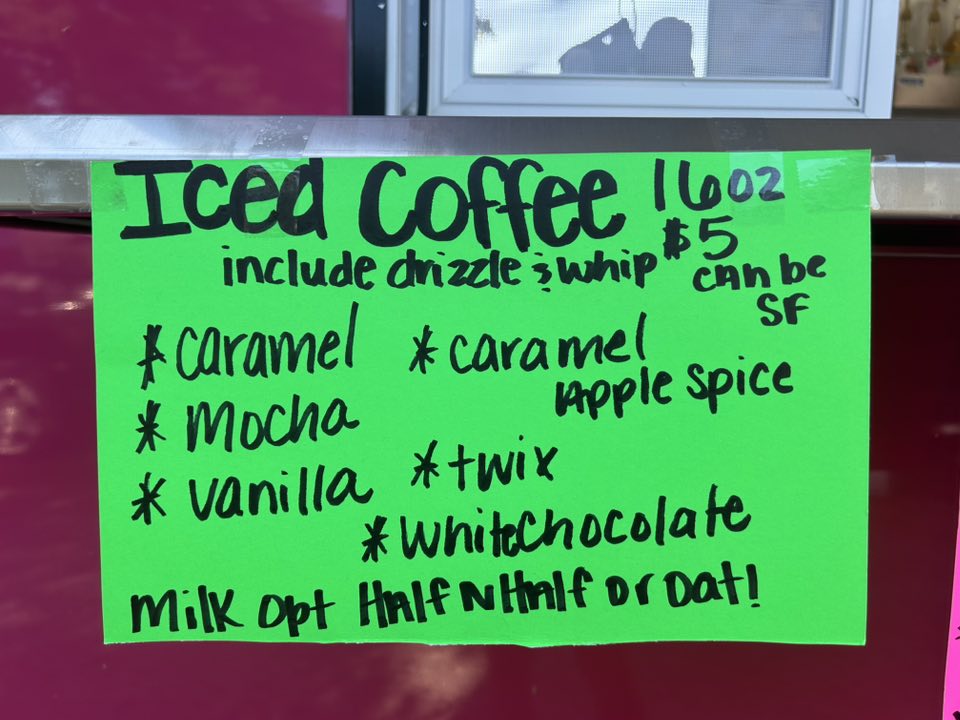 Iced Coffee 16oz
include drizzle & whip $5
can be
SF
* caramel
* Mocha
* vanilla
* caramel
Apple Spice
* twix
* whitechocolate
Milk Opt Half N Half or Oat!